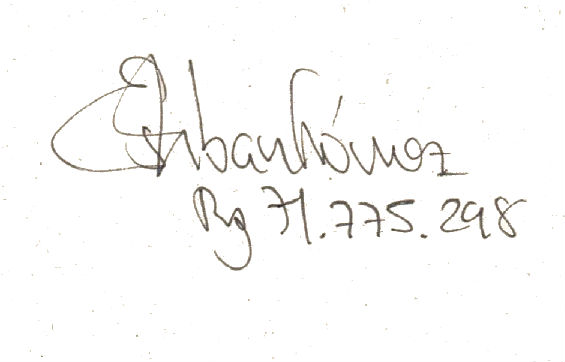 Esteban Gómez
Rg 71.775.298